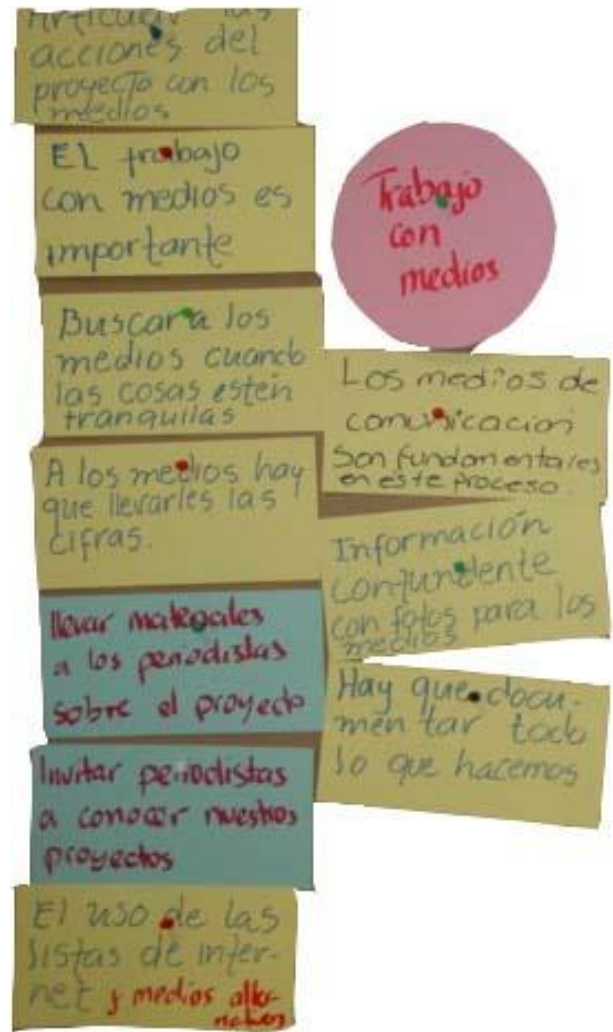 Articular las
acciones del
proyecto con los
medios
EL trabajo
con medios es
importante
Buscar a los
medios cuando
las cosas estén
tranquilas
A los medios hay
que llevarles las
cifras.
llevar materiales
a los periodistas
sobre el proyecto
Invitar periodistas
a conocer nuestros
proyectos
El uso de las
listas de inter-
net y medios alter-
nativos
Trabajo
con
medios
Los medios de
comunicación
son fundamentales
en este proceso.
Información
contundente
con fotos para los
medios
Hay que docu-
mentar todo
lo que hacemos